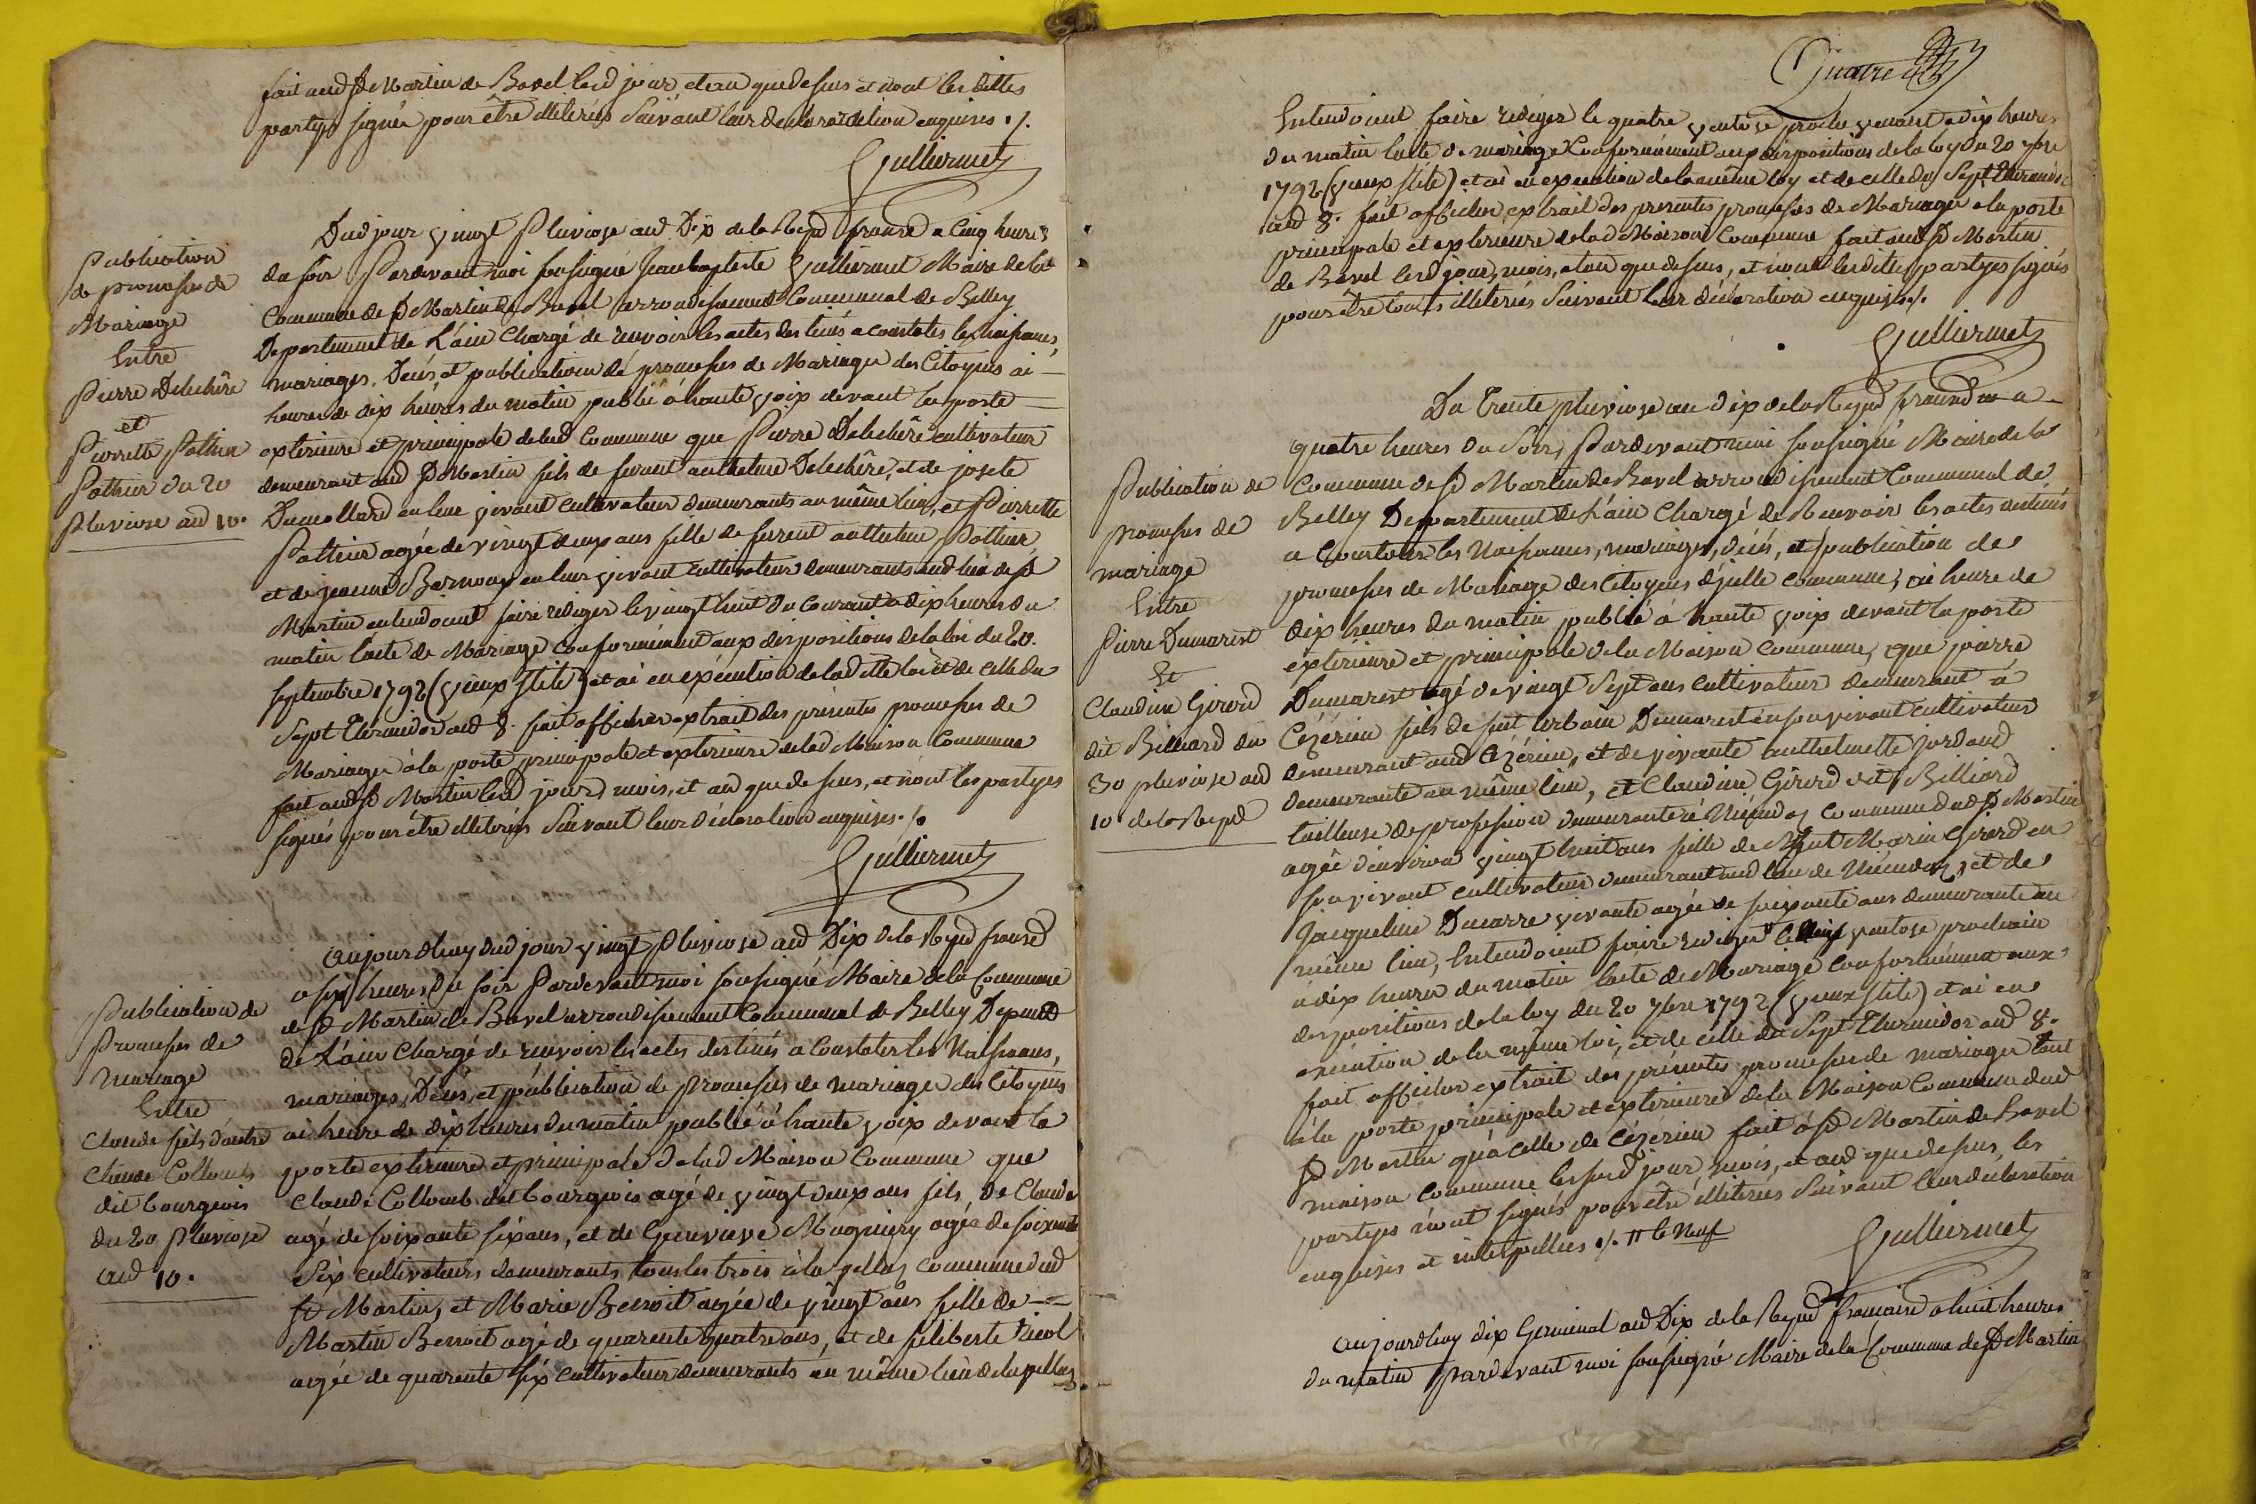 fait aud St Martin de Bavel lesd jour, et an que dessus et n'ont les dittes
partyes signés pour être illiterés Suivant leur declaration enquises ./.
Gulliermet
Publication
de promesses de
Mariage
Entre
Pierre Delechêre
et
Pierrette Pothier
Pothier du 20
Pluviose and 10.
Dud jour vingt Pluviose and Dix de la Repd fransd a Cinq heures
du soir Pardevant moi soussigné Jeanbaptiste Gulliermet Maire de la
Commune de St Martin de Bavel arrondissement Communal de Belley
Departement de L'ain Chargé de recevoir les actes destinés a constater les naissances,
mariages, Decés, et publication de promesses de Mariage des Citoyens ai
heures de dix heures du matin publié à haute voix devant la porte
extérieure et principale de lad Commune que Pierre Delechêre cultivateur
demeurant aud St Martin fils de feu Delechêre, et de
Dumollard en leur vivant Cultivateur demeurants au même lieu, et Pierrette
Pothier agée de vingt deux ans fille de Pothier
et de jeanne en leur vivant cultivateurs demeurants aud lieu de St
Martin entendoient faire rédiger le vingt huit du Courant a dix heures du
matin l'acte de Mariage Conformément aux dispositions de la loi du 20.
septembre 1792 (vieux stile) et ai en exécution de la ditte loi et de celle du
Sept Thermidor and 8. fait afficher extrait des présentes promesses de
Mariage à la porte principale et exterieure de lad Maison Commune
fait aud St Martin lesd jour, mois, et and que dessus, et n'ont les partyes
signés pour être illiterés Suivant leur déclaration enquises ./.
Gulliermet
Publication de
Promesses de
Mariage
Entre
Claude fils d'autre
Claude Collomb
dit bourgeois
du 20 Pluviose
and 10.
aujourdhuy dud jour vingt Pluviose and Dix de la Repd fransd
a six heures du soir Pardevant moi soussigné Maire de la Commune
de St Martin de Bavel arrondissement Communal de Belley Depmd
de L'ain Chargé de recevoir les actes destinés a Constater les Naissances,
mariages, Decés, et publication de promesses de mariage des Citoyens
ai heure de dix heures du matin publié à haute voix devant la
porte exterieure et principale de lad Maison Commune que
Claude Collomb dit bourgeois agé de vingt deux ans fils, de Claude
agé de soixante six ans, et de Genevieve agée de soixante
Six cultivateurs demeurants tous les trois à la pellaz commune dud
St Martin, et Marie Benoit agée de vingt ans fille de
Martin Benoit agé de quarente quatre ans, et de filiberte
agée de quarente six cultivateurs demeurants au même lieu de la pellaz
Quatre
Entendoient faire rédiger le quatre ventose proche venant a dix heures
du matin l'acte de mariage Conformément aux dispositions de la loy du 20 7bre
1792 (vieux stile) et ai en exécution de la même loy et de celle du Sept Thermidor
and 8. fait afficher extrait des presentes promesses de Mariage a la porte
principale et exterieure de lad Maison Commune fait aud St Martin
de Bavel lesd jour, mois, et an que dessus, et n'ont lesdites partyes signés
pour être touts illiterés Suivant leur déclaration enquises ./.
Gulliermet
Publication de
Promesses de
mariage
Entre
Pierre Dumarest
Et
Claudine Girerd
dit Billiard du
30 pluviose and
10 de la Repd
Du trente pluviose an dix de la Repd fransd a
quatre heures du Soir, Pardevant moi soussigné Maire de la
Commune de St Martin de Bavel arrondissement Communal de
Belley Departement de L'ain Chargé de Recevoir les actes destinés
a Constater les Naissances, mariages, décés, et publication de
promesses de Mariage des Citoyens d'jcelle commune, ai heure de
dix heures du matin publié à haute voix devant la porte
extérieure et principale de la Maison Commune, que pierre
Dumarest agé de vingt Sept ans cultivateur demeurant à
Cézérieu fils de feut urbain Dumarest en son vivant cultivateur
demeurant aud Cézérieu, et de vivante anthelmette
demeurante au même lieu, et Claudine Girerd dit Billiard
tailleuse de profession demeurante Commune dud St Martin
agée d'environ vingt huit ans fille de feut Marin Girerd en
son vivant cultivateur demeurant aud lieu de et de
Jacqueline Ducarre vivante agée de soixante ans demeurante au
même lieu, Entendoient faire rediger le ventose prochain
à dix heures du matin l'acte de Mariage Conformément aux
dispositions de la loy du 20 7bre 1792 (vieux stile) et ai en
exécution de la même loi, et de celle du Sept Thermidor and 8.
fait afficher extrait des présentes promesses de mariage tant
à la porte principale et exterieure de la Maison Commune dud
St Martin qu'à celle de Cézérieu fait à St Martin de Bavel
maison Commune les susd jour, mois, et and que dessus, les
partyes n'ont signés pour être illiterés Suivant leur declaration
enquises et interpellées ./. le Neuf
Gulliermet
aujourdhuy dix Germinal and Dix de la Repd francaise a huit heures
du matin Pardevant moi soussigné Maire de la Commune de St Martin